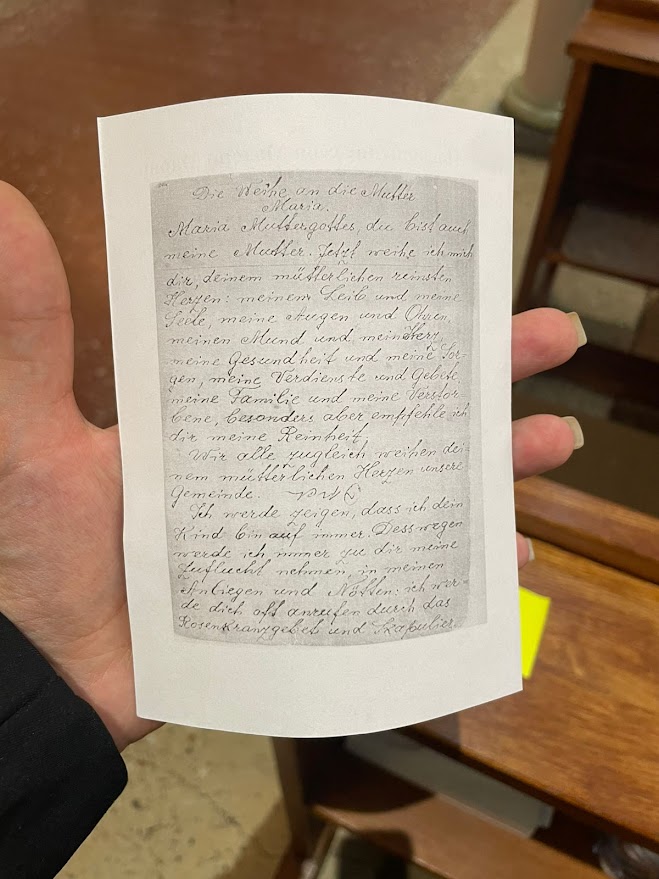 Die Weihe an die Mutter
Maria.
Maria Muttergottes, du bist auch
meine Mutter. Jetzt weihe ich mich
dir, deinem mütterlichen reinsten
Herzen: meinem Leib und meine
Seele, meine Augen und Ohren,
meinen Mund und mein Herz,
meine Gesundheit und meine Sor-
gen, meine Verdienste und Gebete,
meine Familie und meine Verstor
bene, besonders aber empffehle ich
dir meine Reinheit.
Wir alle zugleich weihen dei-
nem mütterlichen Herzen unsere
Gemeinde.
Ich werde zeigen, dass ich dein
Kind bin auf immer. Desswegen
werde ich immer zu dir meine
Zuflucht nehmen, in meinen
Anliegen und Nötten: ich wer-
de dich oft anrufen durch das
Rosenkranzgebet und Skapulier